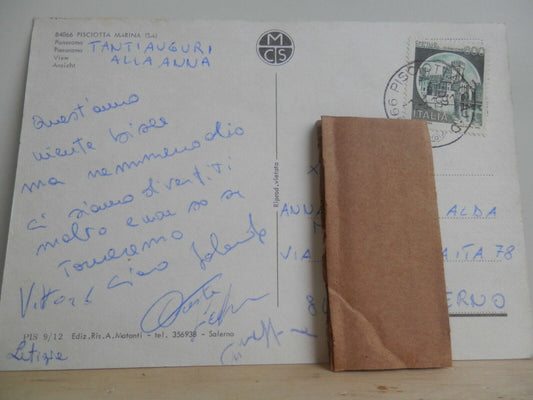 84066 PISCIOTTA MARINA (SA)
Panorama
Panorama
View
Ansicht
TANTI AUGURI
ALLA ANNA
MCS
Quest'anno
niente bisce
ma nemmeno dio
ci siamo divertiti
molto e non so se
torneremo
Ciao Jolanda
Vittoria
Letizia
PIS 9/12 Ediz.Ris.A.Matonti - tel. 356938 - Salerno
Riprod.vietata
200
ITALIA
66 PISCIOTT
ANNA
ALDA
VIA
ITA 78
8
ERNO